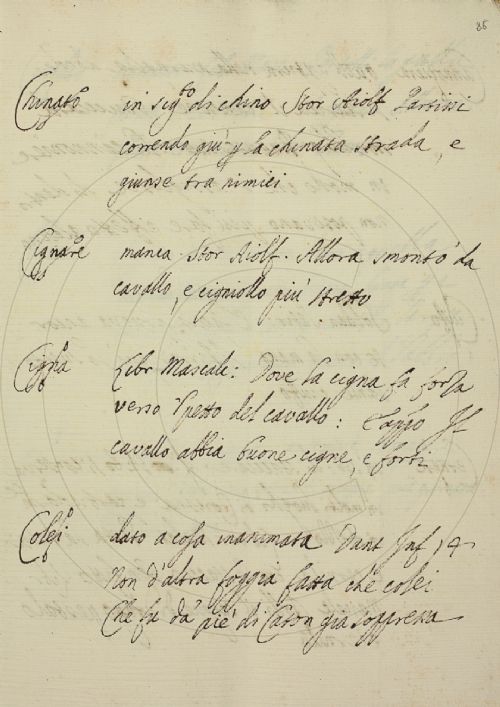 86
Chinato in sig.to di chino Stor Aiolf. Partissi
correndo giù p la chinata strada, e
giunse tra nimici
Cignare manca Stor Aiolf. Allora smontò da
cavallo, e cigniollo più stretto
Cigna Libr Mascalc: Dove la cigna fa forza
verso 'l petto del cavallo:
cavallo abbia buone cigne, e forti
Colei dato a cosa inanimata Dant Inf 14
Non d'altra foggia fatta che colei
Che fu da' piè di Caton già soppressa